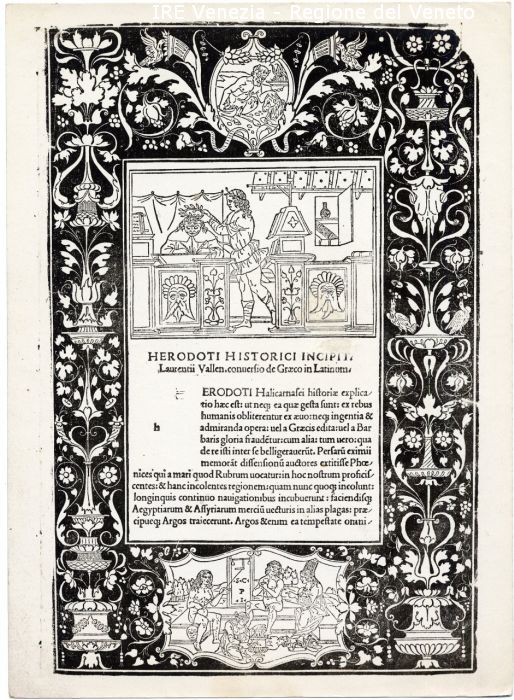 IRE Venezia - Regione del Veneto
HERODOTI HISTORICI INCIPIT.
Laurentii Vallen.conuersio de Græco in Latinum.
h
ERODOTI Halicarnasei historiæ explica-
tio hæc est: ut neq; ea quæ gesta sunt: ex rebus
humanis obliterentur ex æuo: neq; ingentia &
admiranda opera: uel a Græcis edita: uel a Bar
baris gloria fraudētur: cum alia: tum uero: qua
de re isti inter se belligerauerūt. Persarū eximii
memorāt dissensionū auctores extitisse Phœ-
nices qui a mari quod Rubrum uocatur: in hoc nostrum proficis-
centes: & hanc incolentes regionem: quam nunc quoq; incolunt:
longinquis continuo nauigationibus incubuerunt: faciendisq;
Aegyptiarum & Assyriarum merciū uecturis in alias plagas: præ-
cipueq; Argos traiecerunt. Argos &enim ea tempestate omni-
S.C.
P.I.